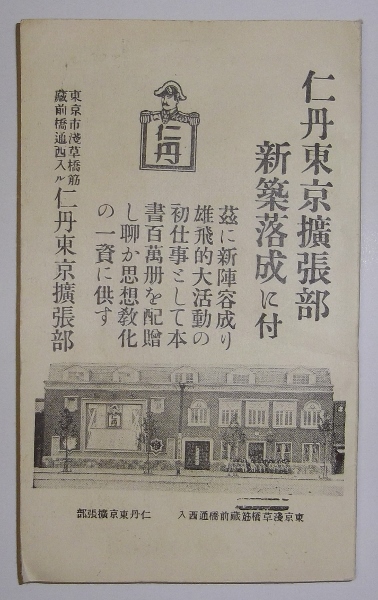 仁丹東京擴張部
新築落成に付
仁丹
茲に新陣容成り
雄飛的大活動の
初仕事として本
書百萬册を配贈
し聊か思想敎化
の一資に供す
東京市淺草橋筋
藏前橋通西入ル
仁丹東京擴張部
仁丹
東京淺草橋筋藏前橋通西入
仁丹東京擴張部